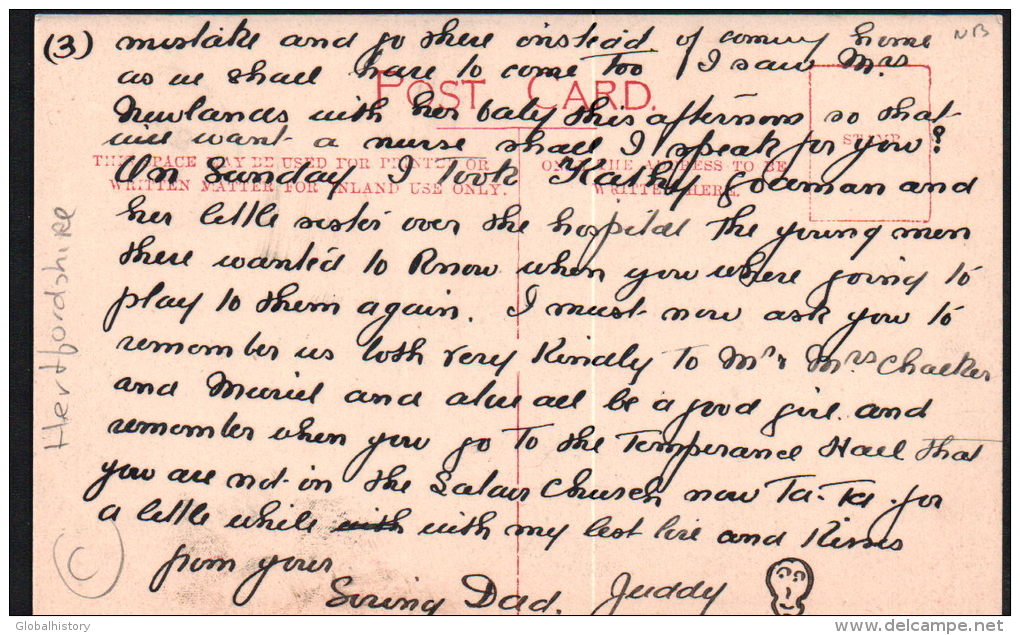 (3) mistake and go there instead of coming home
NB
as we shall have to come too I saw Mrs
POST CARD.
Newlands with her baby this afternoon so that
will want a nurse shall I speak for you?
STAMP
THIS SPACE MAY BE USED FOR PRINTED OR
WRITTEN MATTER FOR INLAND USE ONLY.
ONLY THE ADDRESS TO BE
WRITTEN HERE.
On Sunday I took Kathy and
her little sister over the hospital the young men
there wanted to know when you where going to
play to them again. I must now ask you to
remember us both very kindly to Mr & Mrs Chalker
and Muriel and above all be a good girl and
remember when you go to the Temperance Hall that
you are not in the Church now Ta-Ta for
a little while with with my best love and kisses
from your
loving Dad. Juddy
Hertfordshire
C
Globalhistory
www.delcampe.net